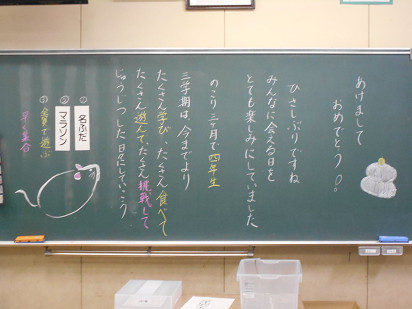 あけまして
おめでとう。
ひさしぶりですね
みんなに会える日を
とても楽しみにしていました
のこり三ヶ月で四年生
三学期は、今までより
たくさん学び、たくさん食べて
たくさん遊んで、たくさん挑戦して
じゅうじつした日々にしていこう
① 名ふだ
② マラソン
③ 全員で遊ぶ
早く集合